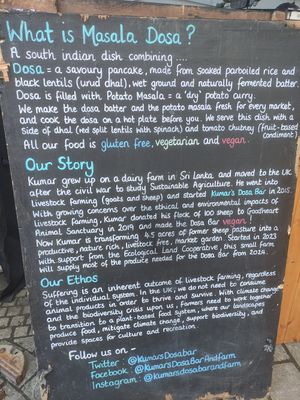 What is Masala Dosa?
A south indian dish combining ....
Dosa = a savoury pancake, made from soaked parboiled rice and
black lentils (urid dhal), wet ground and naturally fermented batter.
Dosa is filled with Potato Masala = a 'dry' potato curry.
We make the dosa batter and the potato masala fresh for every market,
and cook the dosa on a hot plate before you. We serve this dish with a
side of dhal (red split lentils with spinach) and tomato chutney (fruit-based
condiment)
All our food is gluten free, vegetarian and vegan.
Our Story
Kumar grew up on a dairy farm in Sri Lanka and moved to the UK
after the civil war to study Sustainable Agriculture. He went into
livestock farming (goats and sheep) and started Kumar's Dosa Bar in 2015.
With growing concerns over the ethical and environmental impacts of
livestock farming, Kumar donated his flock of 100 sheep to Goodheart
Animal Sanctuary in 2019 and made the Dosa Bar vegan!
Now Kumar is transforming 45 acres of former sheep pasture into a
productive, nature rich, livestock free, market garden. Started in 2023
with support from the Ecological Land Cooperative, this small farm
will supply most of the produce needed for the Dosa Bar from 2024.
Our Ethos
Suffering is an inherent outcome of livestock farming, regardless
of the individual system. In the UK, we do not need to consume
animal products in order to thrive and survive. With climate change
and the biodiversity crisis upon us, farmers need to work together
to transition to a plant-based food system, where our landscapes
produce food, mitigate climate change, support biodiversity, and
provide spaces for culture and recreation.
Follow us on -
Twitter: @KumarsDosabar
Facebook: @KumarsDosaBarAndFarm
Instagram: @kumarsdosabarandfarm